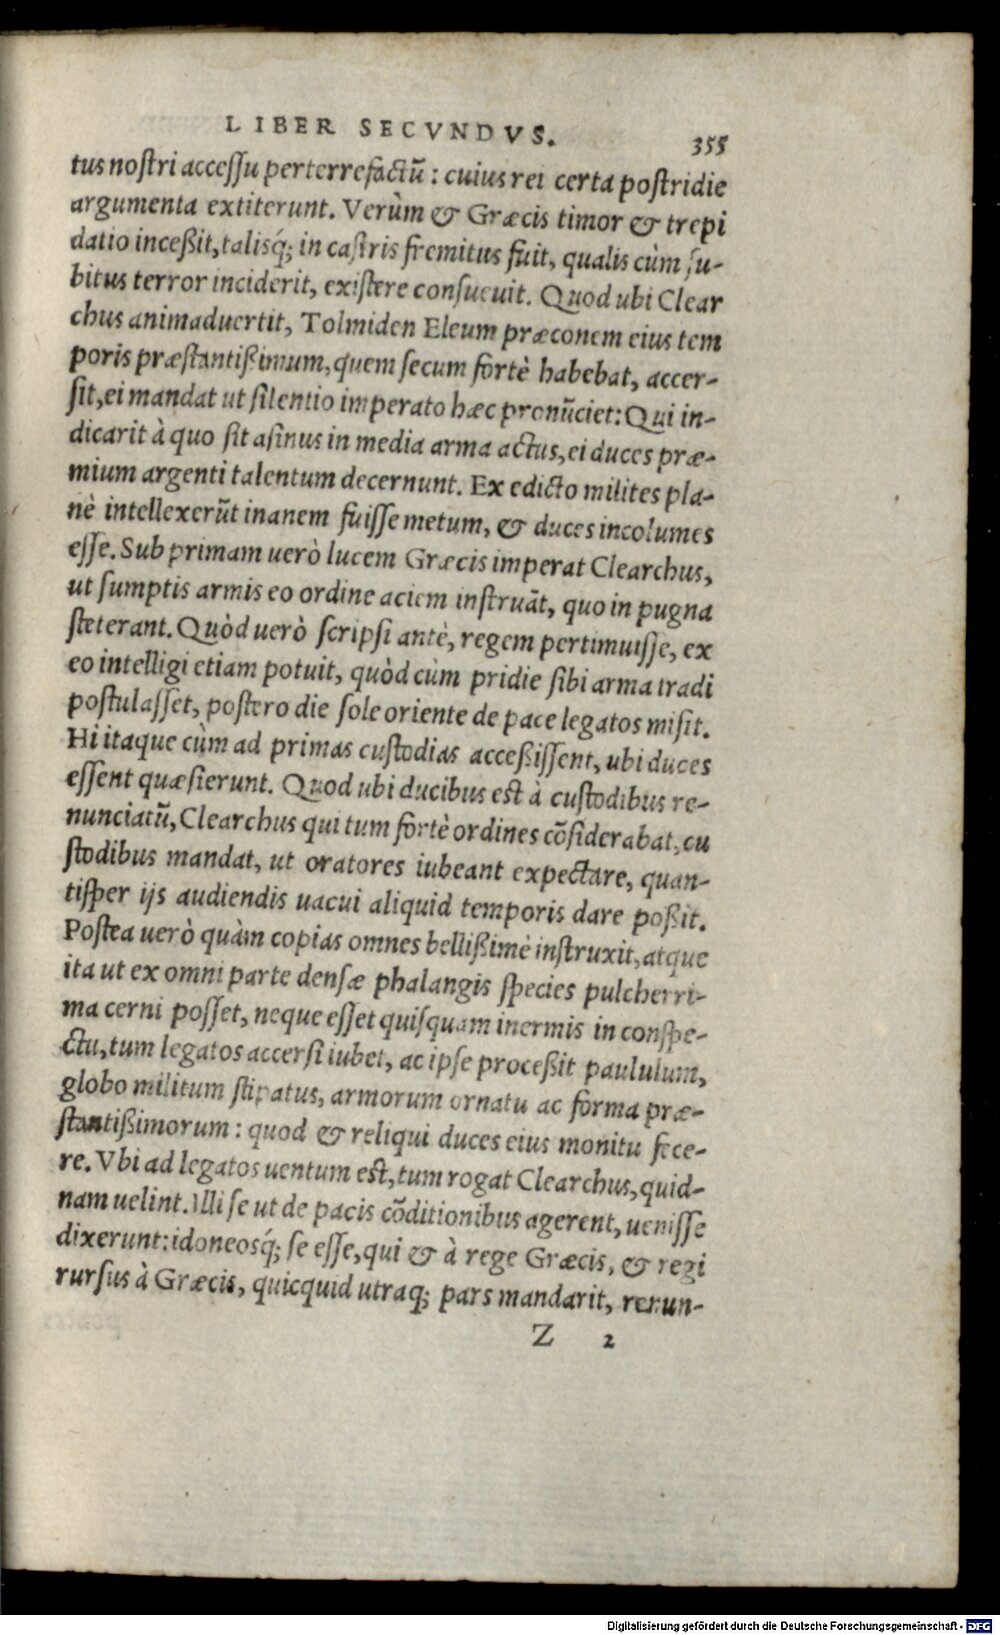 LIBER SECVNDVS. 355
tus nostri accessu perterrefactũ: cuius rei certa postridie
argumenta extiterunt. Verùm & Græcis timor & trepi
datio inceßit, talisq́; in castris fremitus fuit, qualis cùm su-
bitus terror inciderit, existere consueuit. Quod ubi Clear
chus animaduertit, Tolmiden Eleum præconem eius tem
poris præstantißimum, quem secum fortè habebat, accer-
sit, ei mandat ut silentio imperato hæc pronũciet: Qui in-
dicarit à quo sit asinus in media arma actus, ei duces præ-
mium argenti talentum decernunt. Ex edicto milites pla-
nè intellexerũt inanem fuisse metum, & duces incolumes
esse. Sub primam uerò lucem Græcis imperat Clearchus,
ut sumptis armis eo ordine aciem instruãt, quo in pugna
steterant. Quòd uerò scripsi antè, regem pertimuisse, ex
eo intelligi etiam potuit, quòd cùm pridie sibi arma tradi
postulasset, postero die sole oriente de pace legatos misit.
Hi itaque cùm ad primas custodias acceßissent, ubi duces
essent quæsierunt. Quod ubi ducibus est à custodibus re-
nunciatũ, Clearchus qui tum fortè ordines cõsiderabat, cu
stodibus mandat, ut oratores iubeant expectare, quan-
tisper ijs audiendis uacui aliquid temporis dare poßit.
Postea uerò quàm copias omnes bellißimè instruxit, atque
ita ut ex omni parte densæ phalangis species pulcherri-
ma cerni posset, neque esset quisquam inermis in conspe-
ctu, tum legatos accersi iubet, ac ipse proceßit paululum,
globo militum stipatus, armorum ornatu ac forma præ-
stantißimorum: quod & reliqui duces eius monitu fece-
re. Vbi ad legatos uentum est, tum rogat Clearchus, quid-
nam uelint. Illi se ut de pacis cõditionibus agerent, uenisse
dixerunt: idoneosq́; se esse, qui & à rege Græcis, & regi
rursus à Græcis, quicquid utraq; pars mandarit, renun-
Z 2
Digitalisierung gefördert durch die Deutsche Forschungsgemeinschaft - DFG